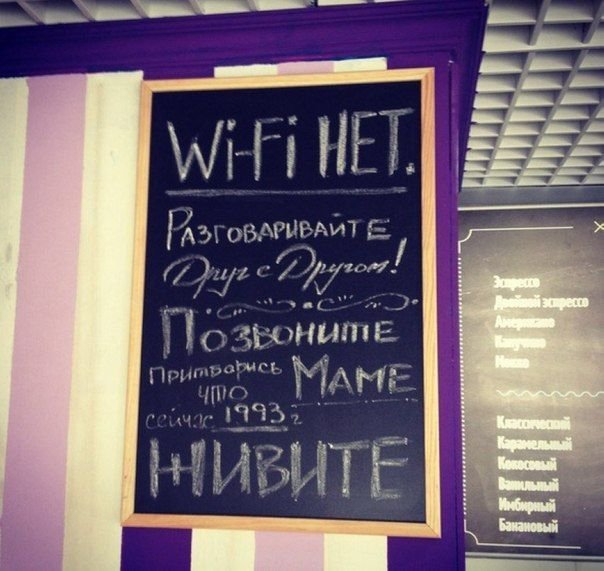 Wi-Fi НЕТ.
РАЗГОВАРИВАЙТЕ
Друг с Другом!
ПОЗВОНИТЕ
МАМЕ
Притворись
что
сейчас 1993 г
ЖИВИТЕ
Эспрессо
Двойной эспрессо
Американо
Капучино
Мокко
Классический
Карамельный
Кокосовый
Ванильный
Имбирный
Банановый